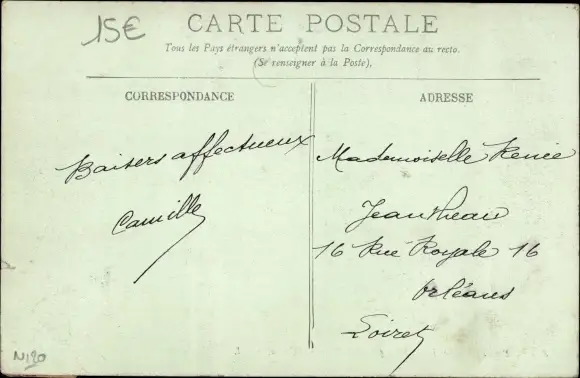 15€
CARTE POSTALE
Tous les Pays étrangers n'acceptent pas la Correspondance au recto.
(Se renseigner à la Poste).
CORRESPONDANCE
Baisers affectueux
Camille
ADRESSE
Mademoiselle Renée
16 Rue Royale 16
Orléans
Loiret